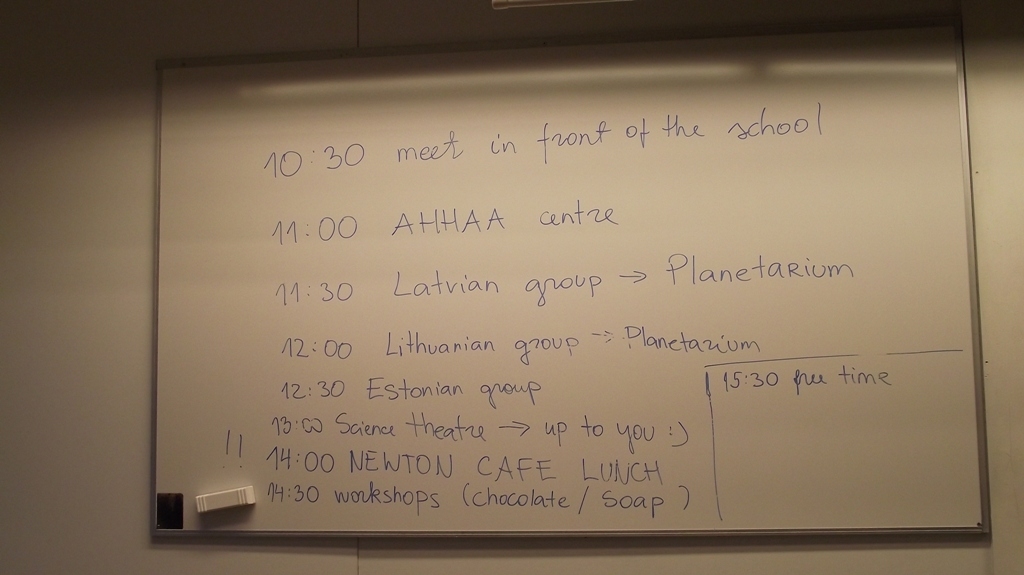 10:30 meet in front of the school
11:00 AHHAA centre
11:30 Latvian group → Planetarium
12:00 Lithuanian group → Planetarium
12:30 Estonian group
13:00 Science theatre → up to you :)
!! 14:00 NEWTON CAFE LUNCH
14:30 workshops (chocolate / soap)
15:30 free time